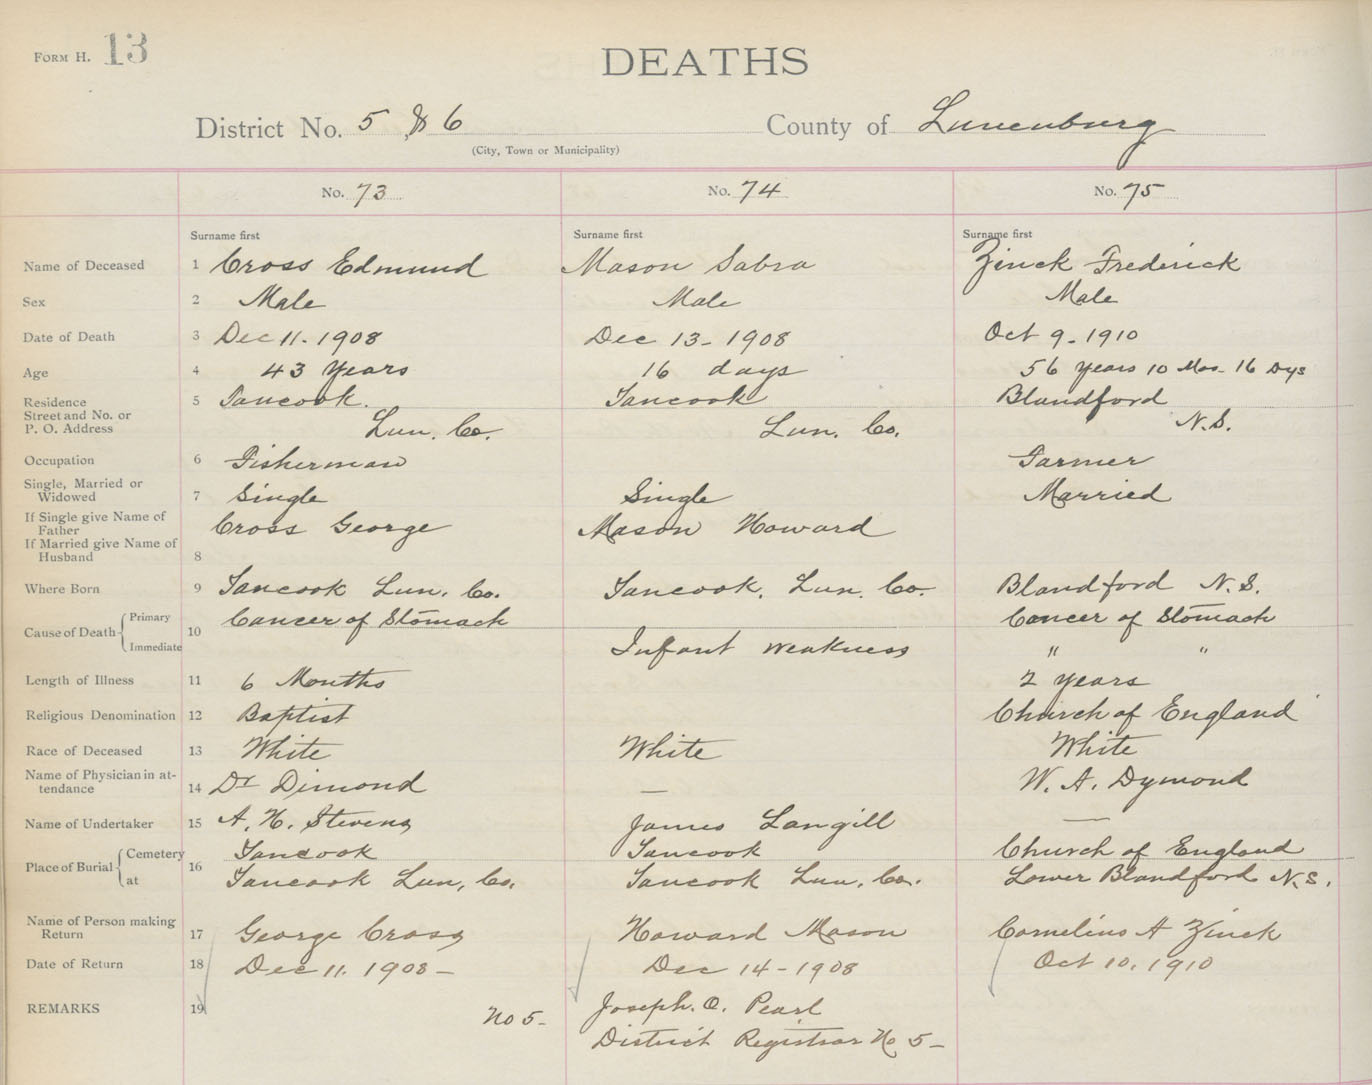 FORM H. 13
DEATHS
District No. 5 & 6 County of Lunenburg
(City, Town or Municipality)
No. 73 No. 74 No. 75
Surname first Surname first Surname first
Name of Deceased 1 Cross Edmund Mason Sabra Zinck Frederick
Sex 2 Male Male Male
Date of Death 3 Dec 11. 1908 Dec 13 - 1908 Oct 9. 1910
Age 4 43 Years 16 days 56 years 10 Mos. 16 Dys
Residence 5 Tancook. Tancook Blandford
Street and No. or
P. O. Address Lun. Co. Lun. Co. N.S.
Occupation 6 Fisherman Farmer
Single, Married or
Widowed 7 Single Single Married
If Single give Name of
Father Cross George Mason Howard
If Married give Name of
Husband 8
Where Born 9 Tancook Lun. Co. Tancook. Lun. Co. Blandford N.S.
Cause of Death Primary 10 Cancer of Stomach Cancer of Stomach
Immediate Infant weakness " "
Length of Illness 11 6 Months 2 years
Religious Denomination 12 Baptist Church of England
Race of Deceased 13 White White White
Name of Physician in at-
tendance 14 Dr Dimond — W. A. Dymond
Name of Undertaker 15 A. H. Stevens James Langill —
Place of Burial Cemetery 16 Tancook Tancook Church of England
at Tancook Lun. Co. Tancook Lun. Co. Lower Blandford N.S.
Name of Person making
Return 17 George Cross Howard Mason Cornelius A Zinck
Date of Return 18 Dec 11. 1908 - Dec 14 - 1908 Oct 10. 1910
REMARKS 19 No 5 - Joseph. O. Pearl
District Registrar No 5 -